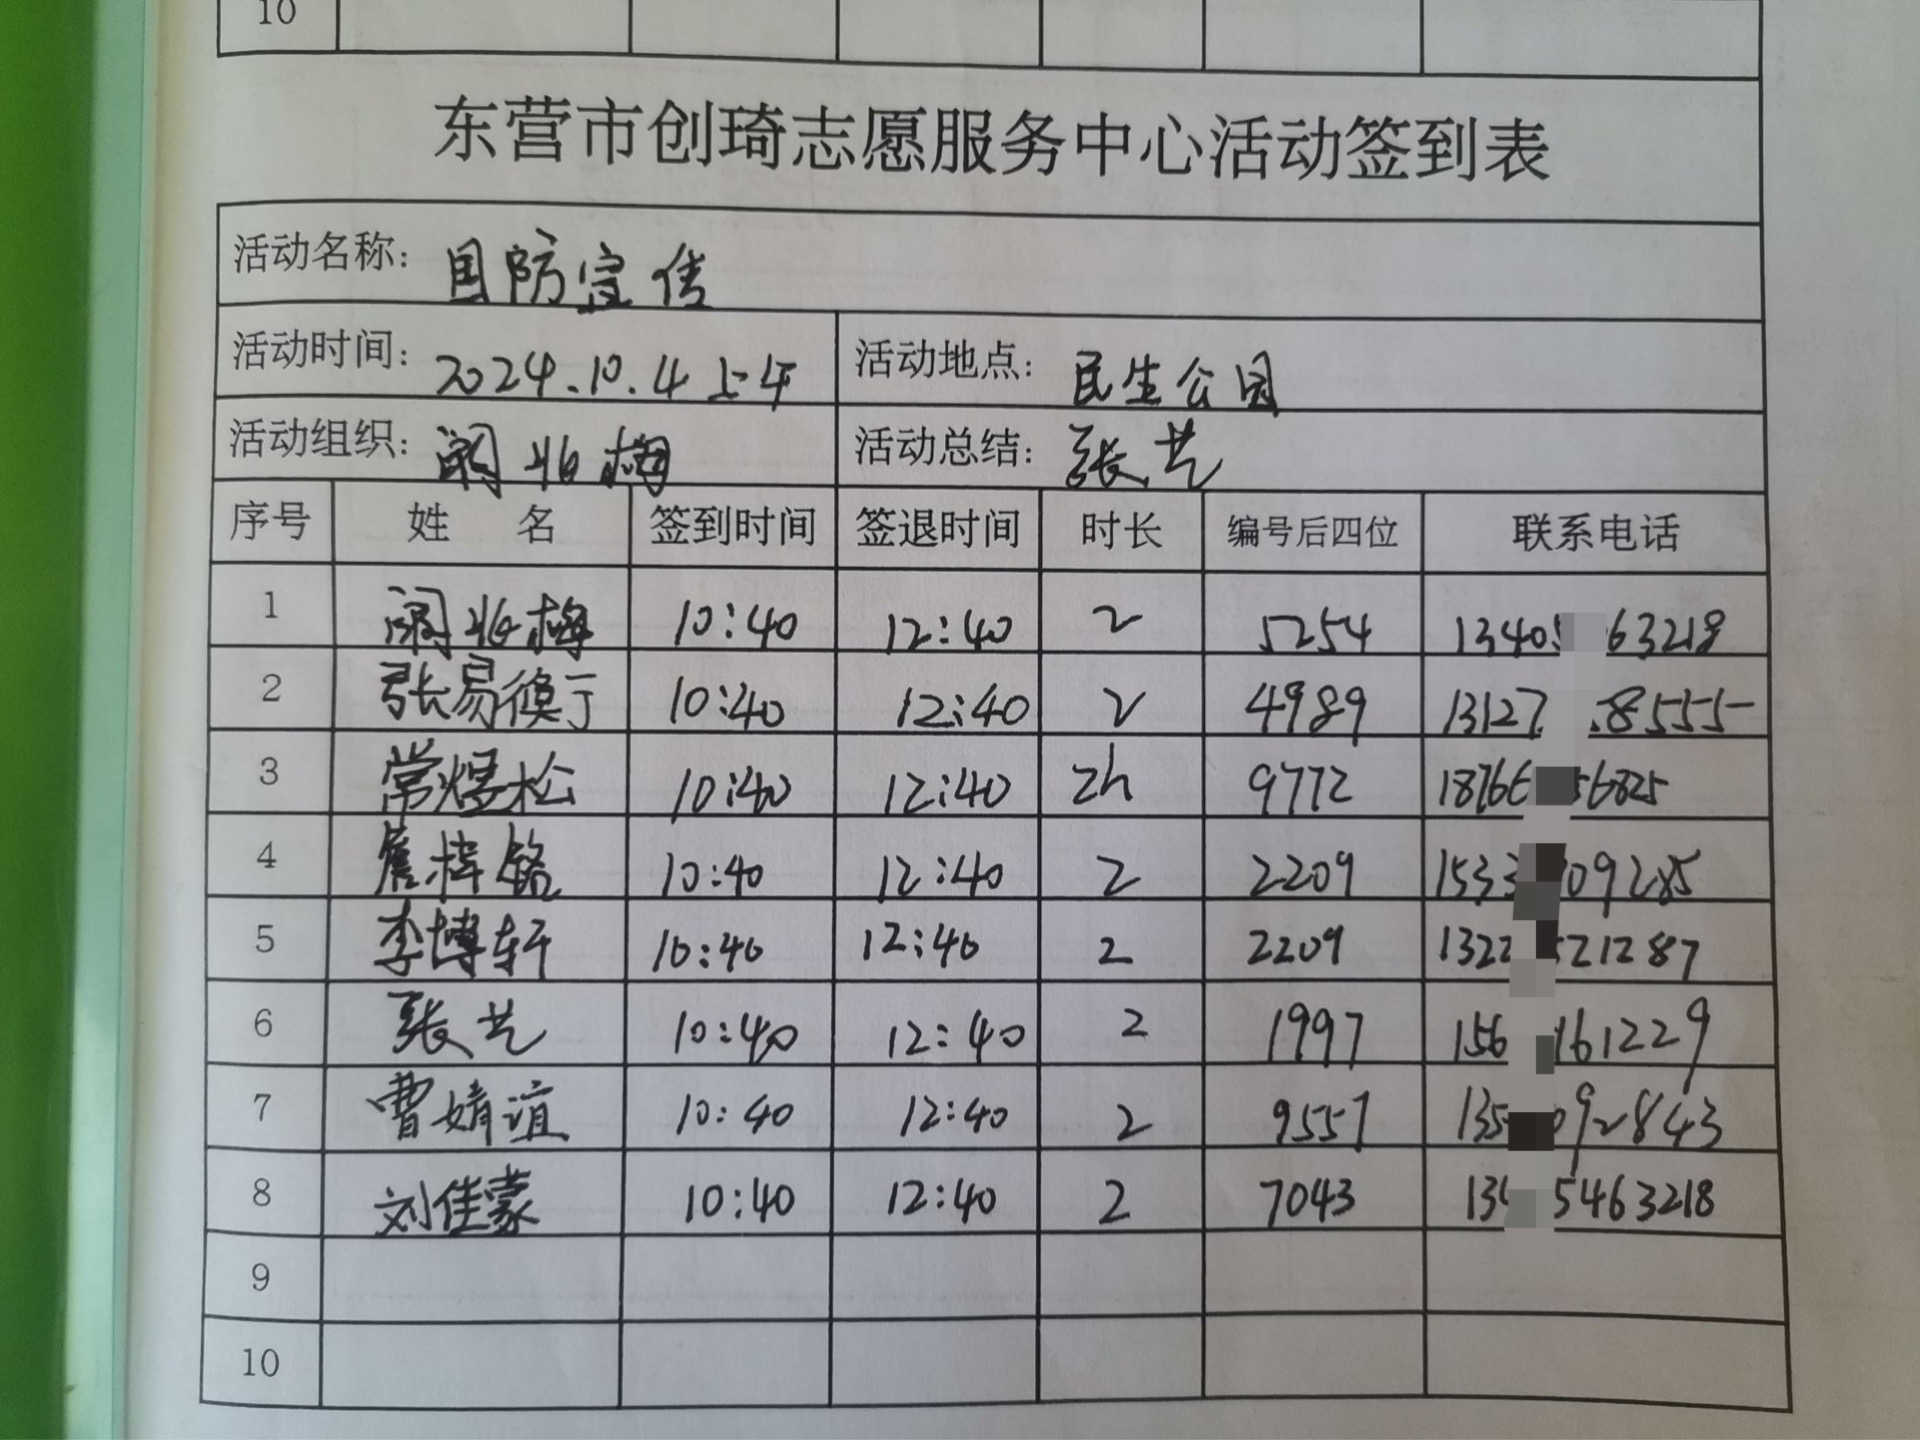 10
东营市创琦志愿服务中心活动签到表
活动名称: 国防宣传
活动时间: 2024.10.4 上午 活动地点: 民生公园
活动组织: 活动总结: 张艺
序号 姓 名 签到时间 签退时间 时长 编号后四位 联系电话
1 10:40 12:40 2 5254 1340 63218
2 10:40 12:40 2 4989 13127 8555
3 10:40 12:40 2h 9772 1876 56825
4 10:40 12:40 2 2209 153 09285
5 李博轩 10:40 12:40 2 2209 1322 21287
6 张艺 10:40 12:40 2 1997 156 161229
7 曹婧谊 10:40 12:40 2 9557 135 092843
8 刘佳蒙 10:40 12:40 2 7043 13 5463218
9
10